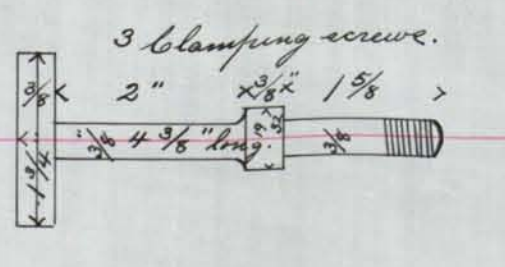 3 Clamping screws.
3/8 2" x 3/8" x 1 5/8
1 3/4 3/8 4 3/8" long. 19/32 3/8